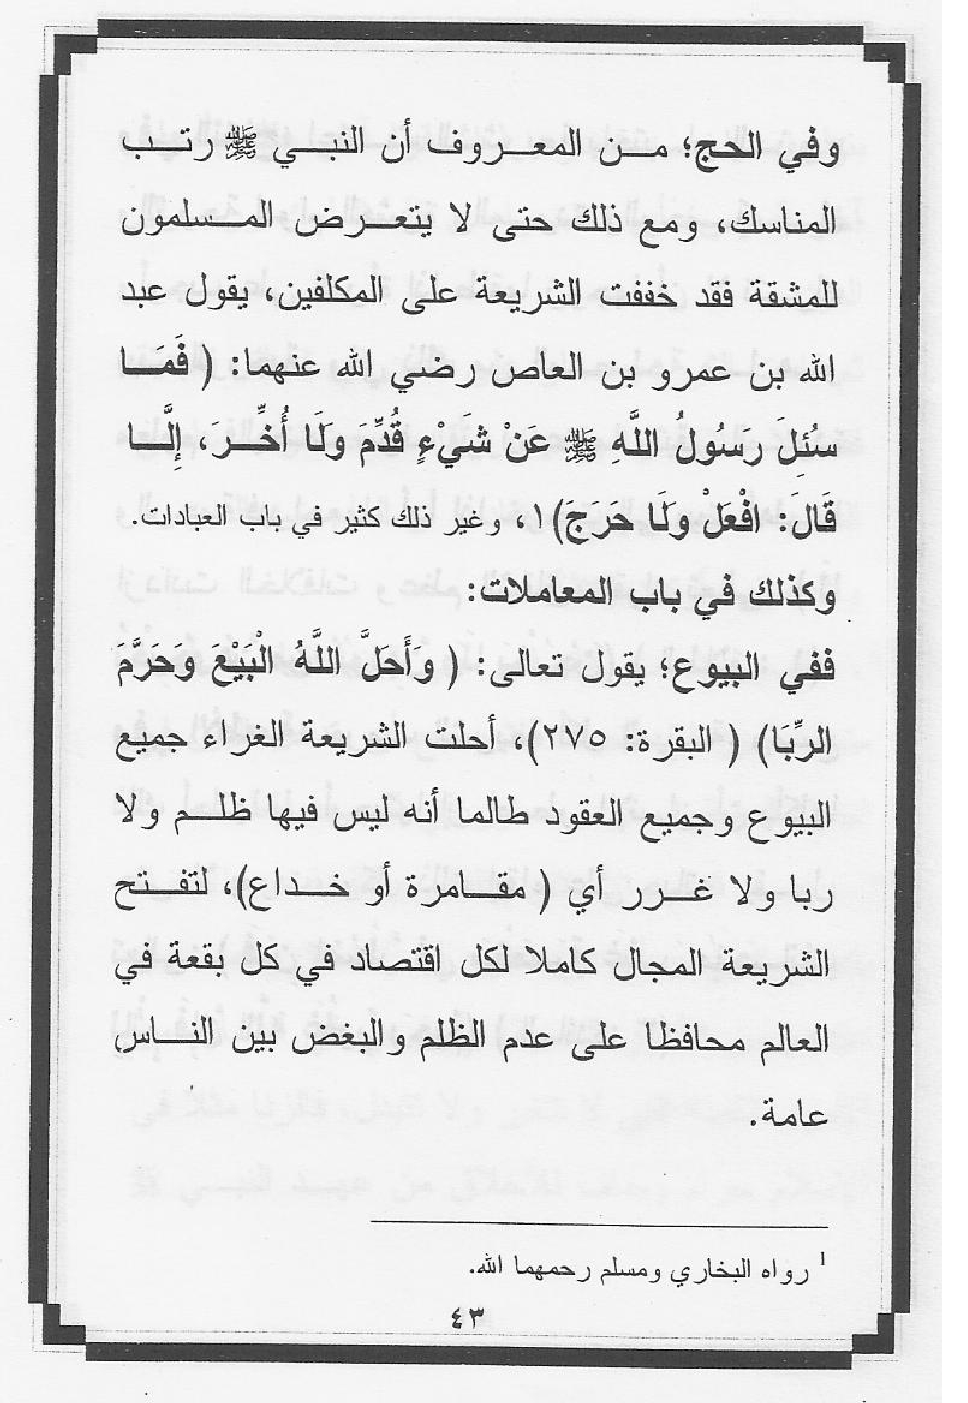 وفي الحج؛ من المعروف أن النبي ﷺ رتب
المناسك، ومع ذلك حتى لا يتعرض المسلمون
للمشقة فقد خففت الشريعة على المكلفين، يقول عبد
الله بن عمرو بن العاص رضي الله عنهما: ( فَمَا
سُئِلَ رَسُولُ اللَّهِ ﷺ عَنْ شَيْءٍ قُدِّمَ وَلَا أُخِّرَ، إِلَّا
قَالَ: افْعَلْ وَلَا حَرَجَ)١، وغير ذلك كثير في باب العبادات.
وكذلك في باب المعاملات:
ففي البيوع؛ يقول تعالى: ( وَأَحَلَّ اللَّهُ الْبَيْعَ وَحَرَّمَ
الرِّبَا) ( البقرة: ٢٧٥)، أحلت الشريعة الغراء جميع
البيوع وجميع العقود طالما أنه ليس فيها ظلم ولا
ربا ولا غرر أي ( مقامرة أو خداع)، لتفتح
الشريعة المجال كاملا لكل اقتصاد في كل بقعة في
العالم محافظا على عدم الظلم والبغض بين الناس
عامة.
١ رواه البخاري ومسلم رحمهما الله.
٤٣